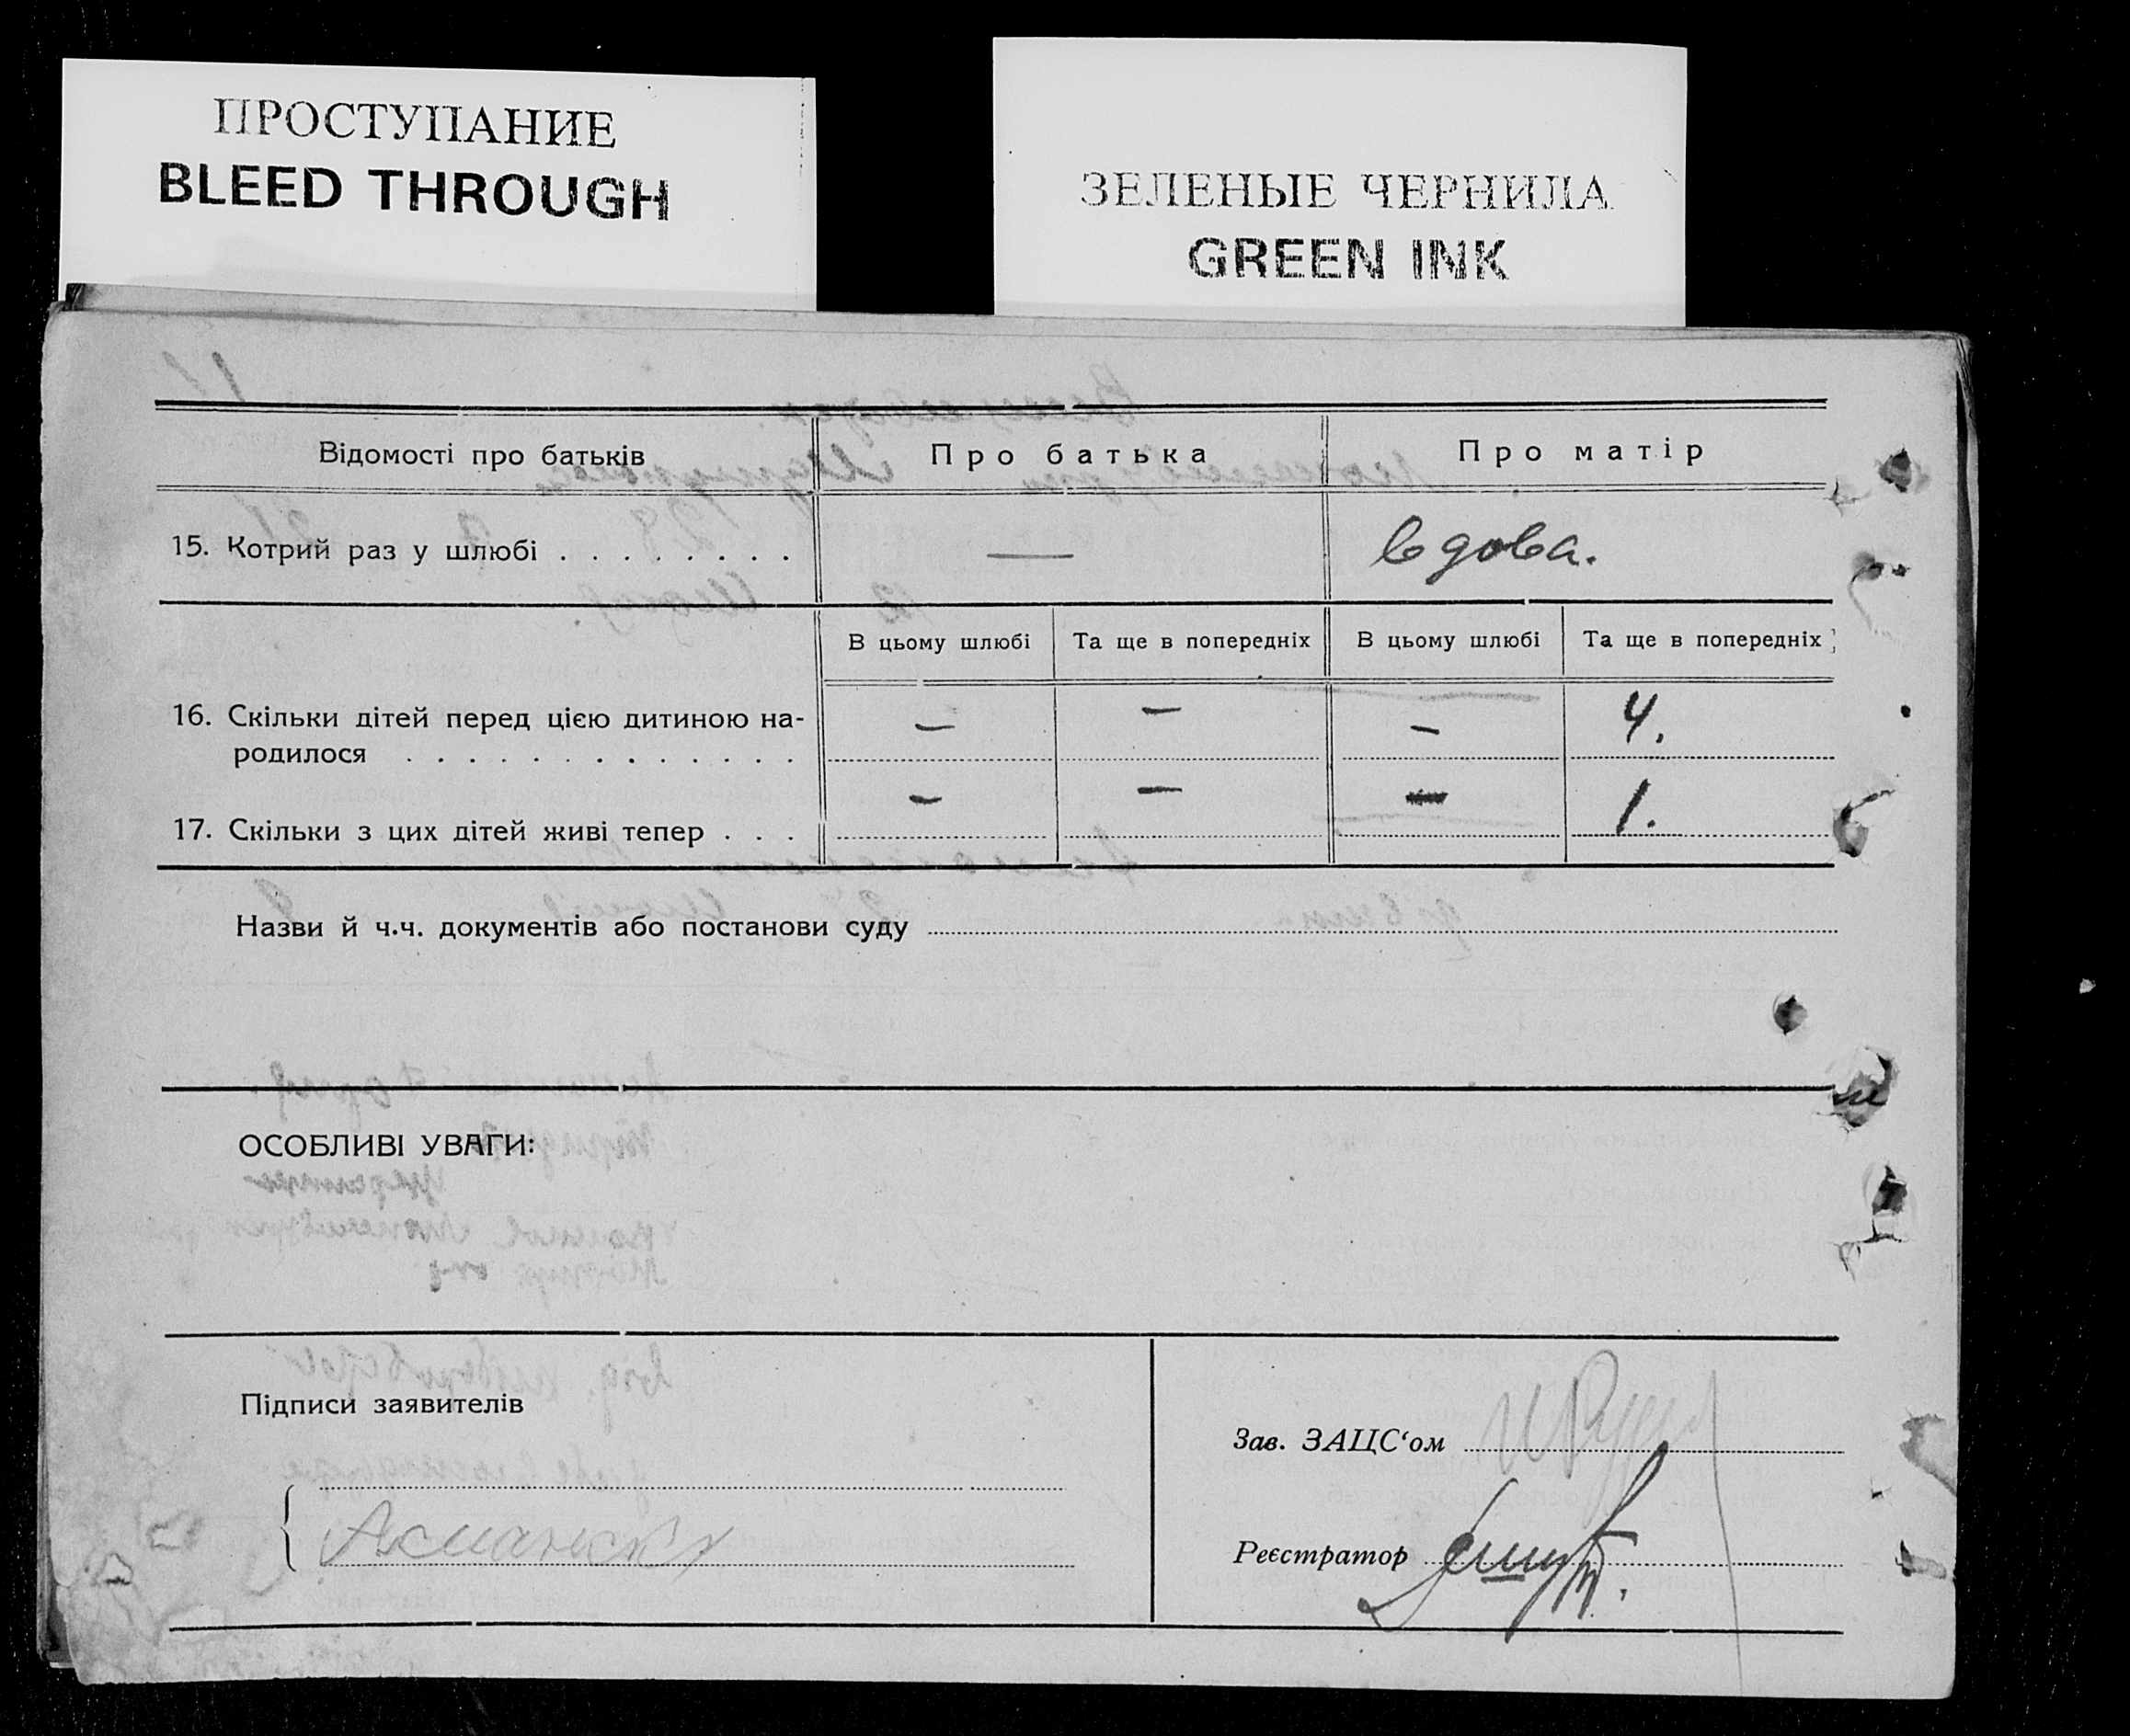 ПРОСТУПАНИЕ
BLEED THROUGH
ЗЕЛЕНЫЕ ЧЕРНИЛА
GREEN INK
Відомості про батьків Про батька Про матір
15. Котрий раз у шлюбі . . . . . . . . — вдова.
В цьому шлюбі Та ще в попередніх В цьому шлюбі Та ще в попередніх
16. Скільки дітей перед цією дитиною на- — — — 4.
родилося . . . . . . . . . . . . .
17. Скільки з цих дітей живі тепер . . . — — — 1.
Назви й ч.ч. документів або постанови суду
ОСОБЛИВІ УВАГИ:
Підписи заявителів
Зав. ЗАЦС‘ом
Реєстратор